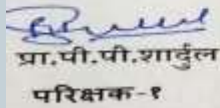 प्रा.पी.पी.शार्दुल
परिक्षक-१